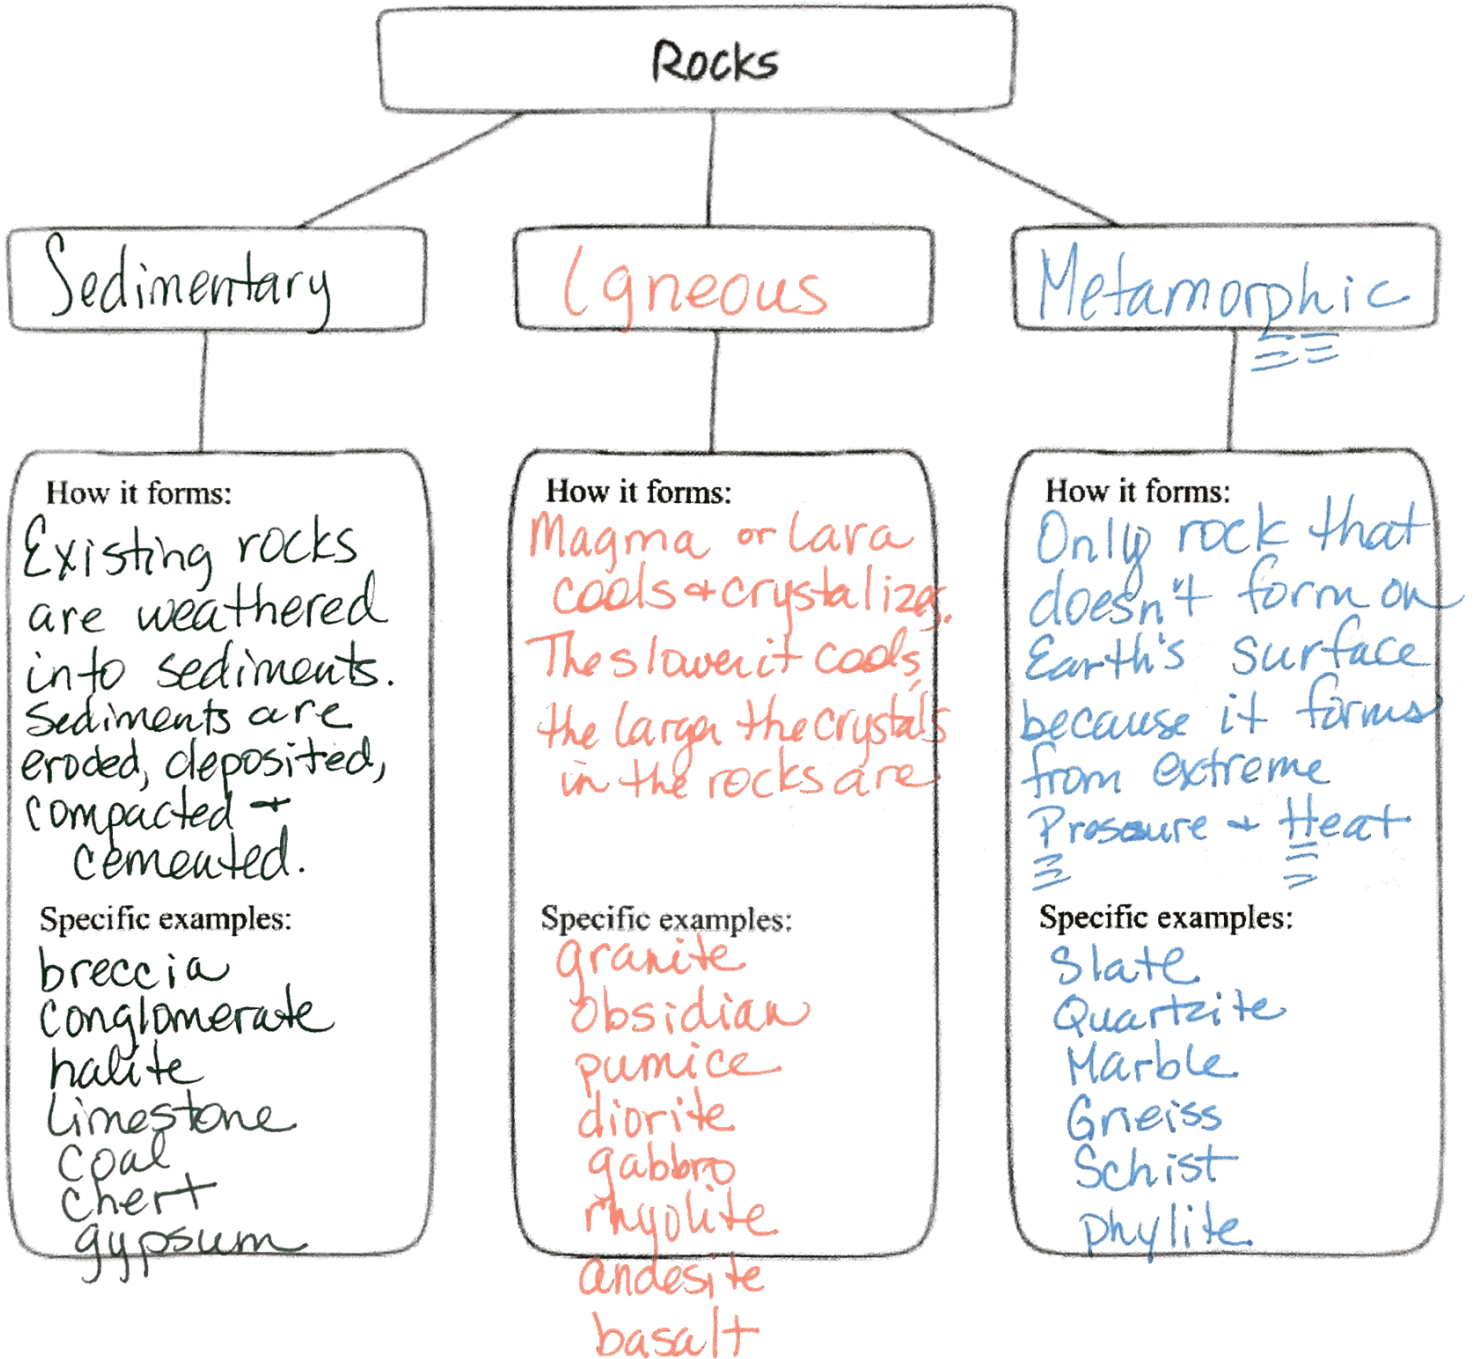 Rocks
Sedimentary
Igneous
Metamorphic
How it forms:
Existing rocks
are weathered
into sediments.
Sediments are
eroded, deposited,
compacted +
cemented.
Specific examples:
breccia
conglomerate
halite
Limestone
coal
chert
gypsum
How it forms:
Magma or Lava
cools + crystalizes.
The slower it cools,
the larger the crystals
in the rocks are
Specific examples:
granite
obsidian
pumice
diorite
gabbro
rhyolite
andesite
basalt
How it forms:
Only rock that
doesn't form on
Earth's surface
because it forms
from extreme
Pressure + Heat
Specific examples:
Slate
Quartzite
Marble
Gneiss
Schist
phylite